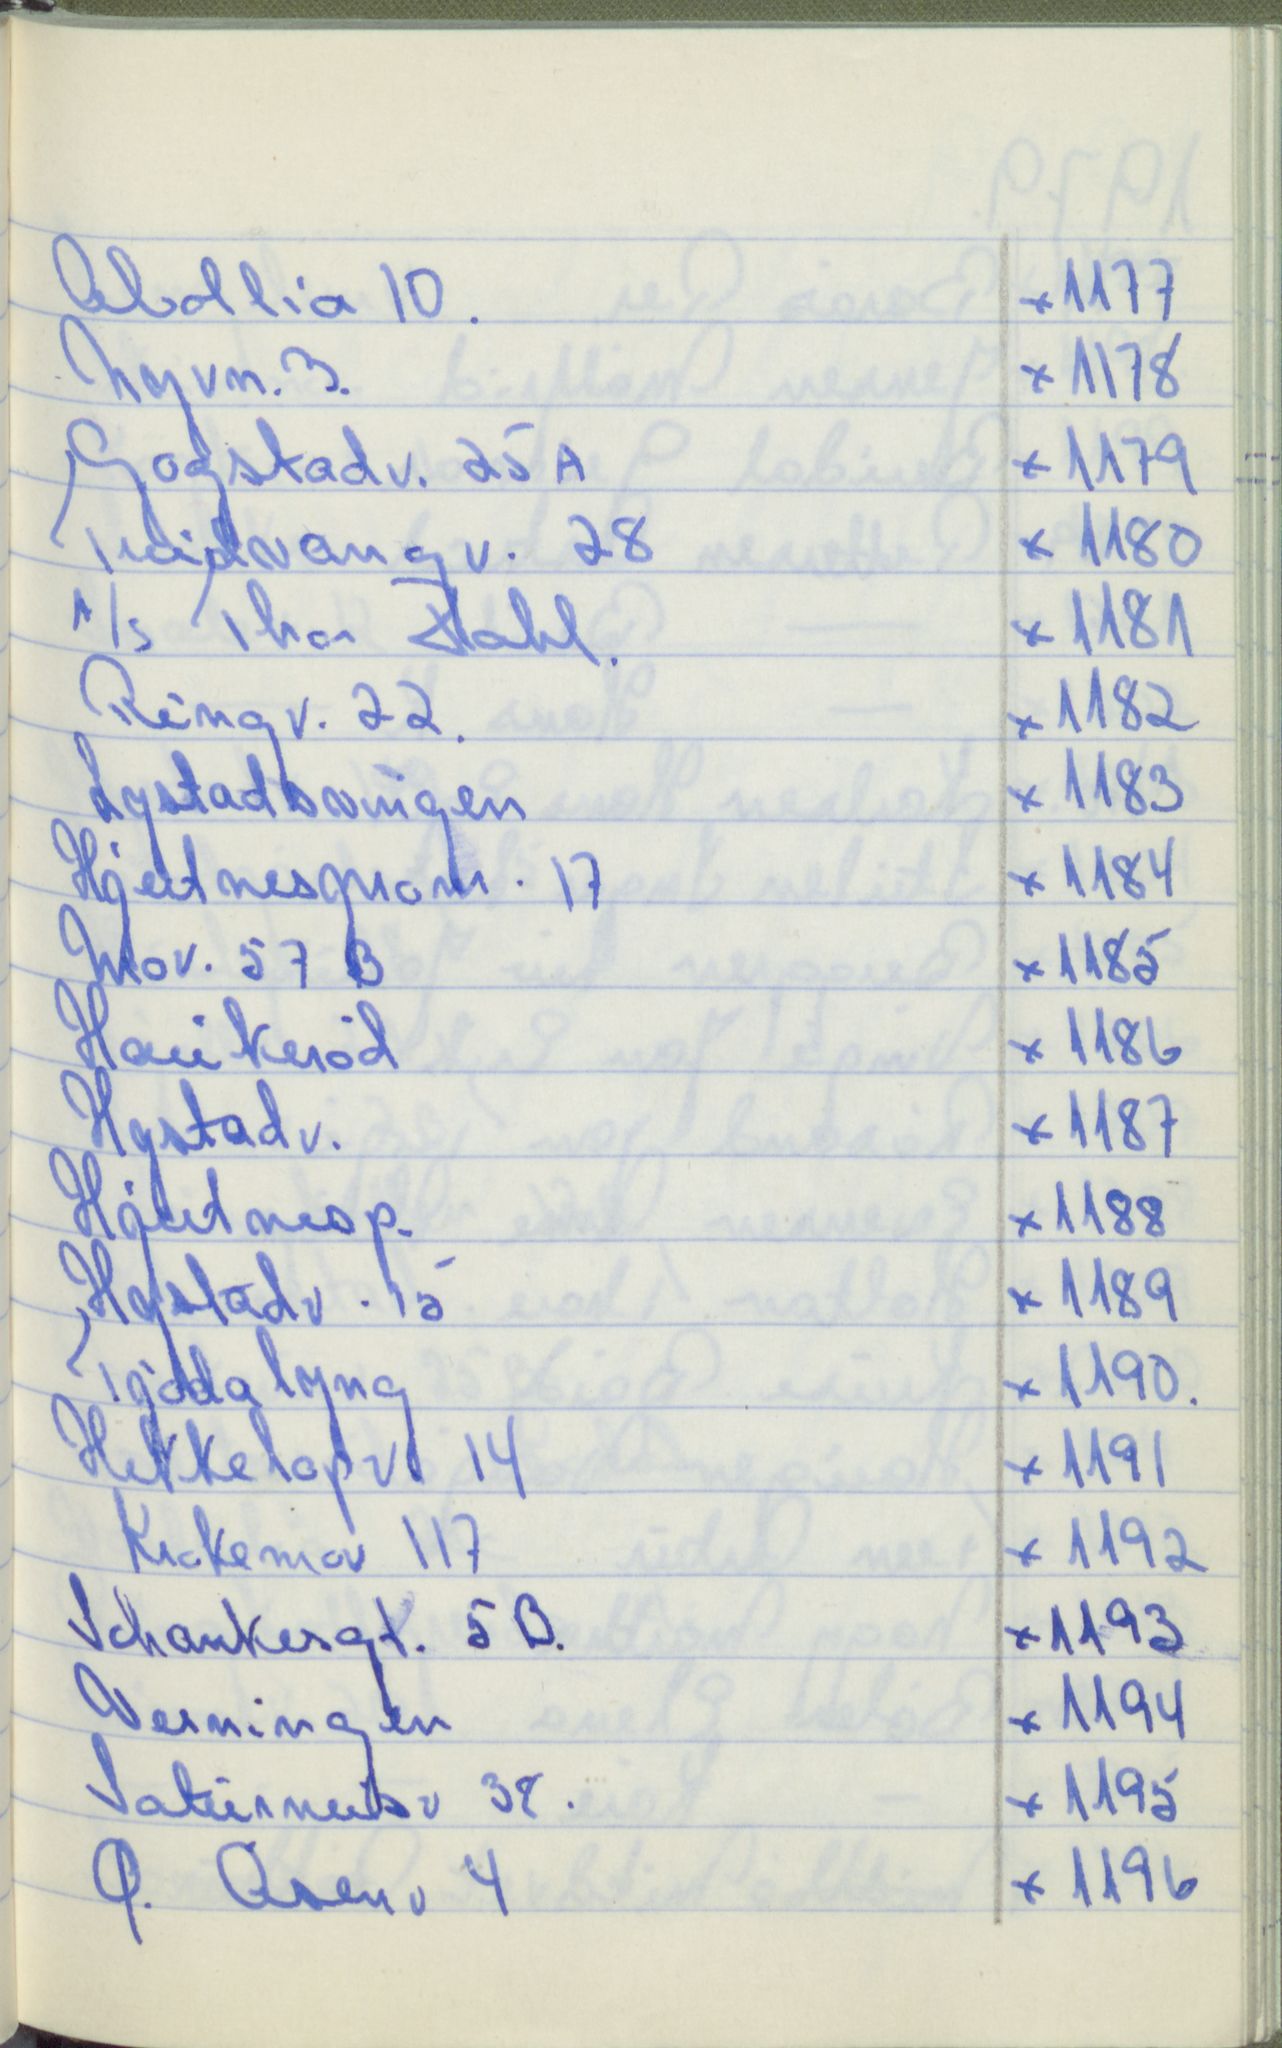 Abol lia 10. x 1177
Myvn. 3. x 1178
Gogstadv. 25 A x 1179
Treidvangv. 28 x 1180
A/s Thor Dahl. x 1181
Ringv. 22. x 1182
Lystadsvingen x 1183
Hjertnesprom. 17 x 1184
Mov. 57 B x 1185
Haukerød x 1186
Hystadv. x 1187
Hjertnesp. x 1188
Hystadv. 15 x 1189
Tjødalyng x 1190.
Hekkelopv. 14 x 1191
Krokemov 117 x 1192
Schankesgt. 5 B. x 1193
Verningen x 1194
Saturnusv 38. x 1195
Ø. Åsenv 4 x 1196